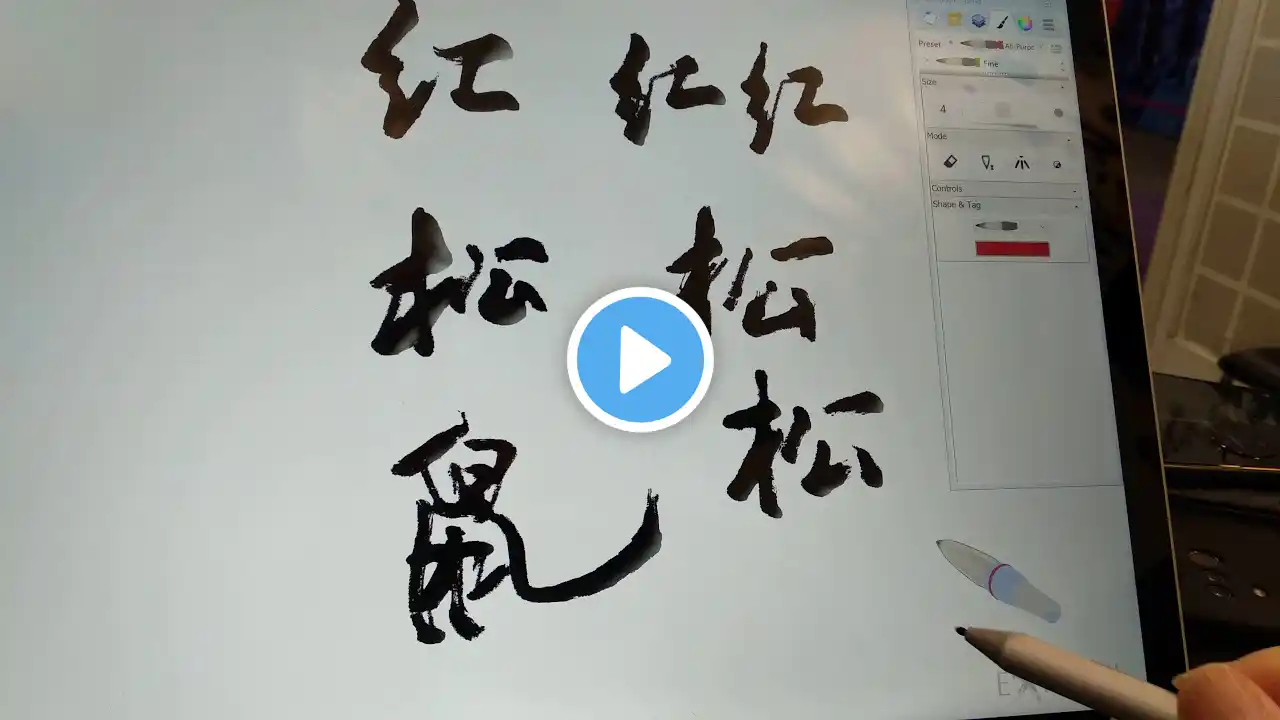 红 红 红
松 松
松
鼠
Preset
All-Purpo
Fine
Size
4
Mode
Controls
Shape & Tag